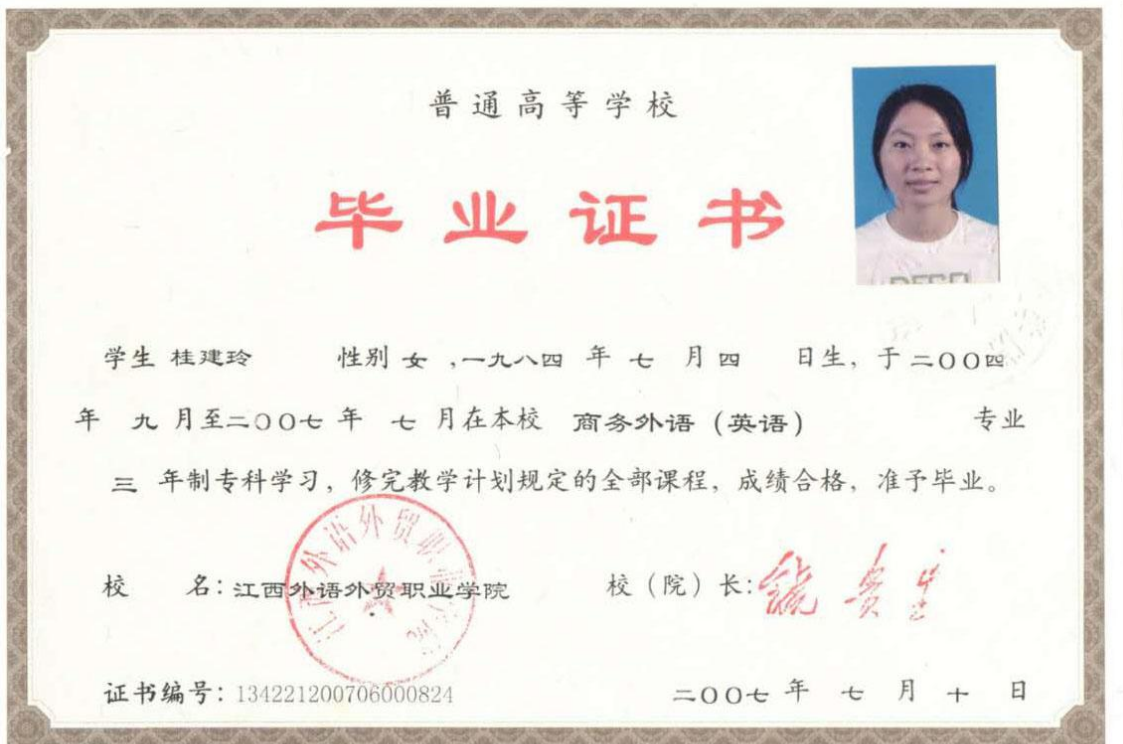 普通高等学校
毕业证书
学生 桂建玲 性别 女 ,一九八四 年 七 月 四 日生, 于 二〇〇四
年 九 月至二〇〇七 年 七 月在本校 商务外语(英语) 专业
三 年制专科学习, 修完教学计划规定的全部课程, 成绩合格, 准予毕业。
江西外语外贸职业学院
校 名: 江西外语外贸职业学院 校(院)长:
证书编号: 134221200706000824 二〇〇七 年 七 月 十 日